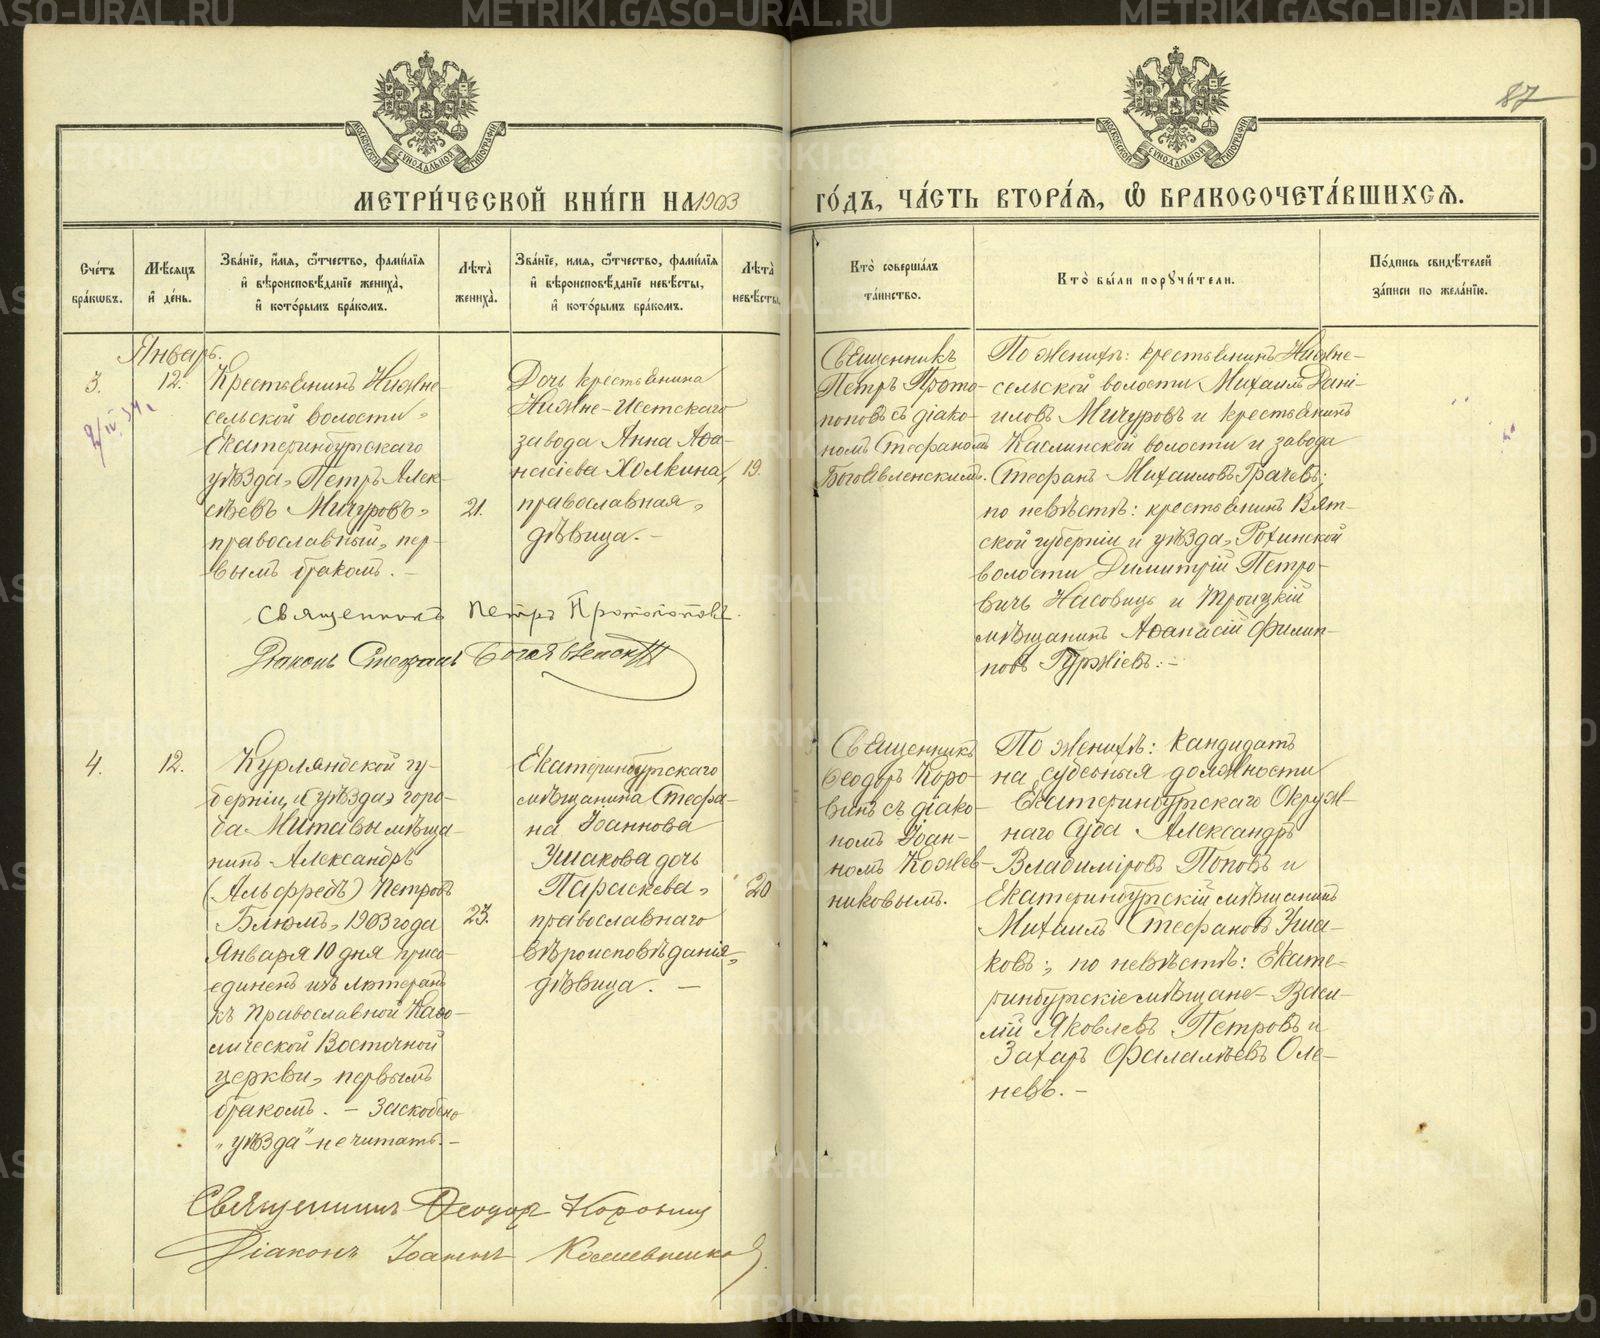 87
МОСКОВСКОЙ СѴНОДАЛЬНОЙ ТИПОГРАФІИ
МОСКОВСКОЙ СѴНОДАЛЬНОЙ ТИПОГРАФІИ
МЕТРИ́ЧЕСКОЙ КНИ́ГИ НА 1903
ГО́ДЪ, ЧА́СТЬ ВТОРА́Я, Ѽ БРАКОСОЧЕТА́ВШИХСЯ.
Сче́тъ
бра́ковъ.
Мѣ́сяцъ
и҆ де́нь.
Зва́нїе, и҆́мя, ѻ҆́тчество, фами́лїя
и҆ вѣроисповѣ́данїе жениха̀,
и҆ кото́рымъ бра́комъ.
Лѣ́та
жениха̀.
Зва́нїе, имя, ѻ҆́тчество, фами́лїя
и҆ вѣроисповѣ́данїе невѣ́сты,
и҆ кото́рымъ бра́комъ.
Лѣ́та
невѣ́сты.
Кто̀ соверша́лъ
та́инство.
Кто̀ бы́ли поручи́тели.
По́дпись свидѣ́телей
за́писи по жела́нїю.
Январь.
3.
12.
Крестьянинъ Нижне-
сельской волости,
Екатеринбургскаго
уѣзда, Петръ Алек-
сѣевъ Мичуровъ,
православный, пер-
вымъ бракомъ. –
21.
Дочь крестьянина
Нижне-Исетскаго
завода Анна Аѳа-
насіева Холкина,
православная,
дѣвица. –
19.
Священникъ
Петръ Прото-
поповъ съ діако-
номъ Стефаномъ
Богоявленскимъ.
По женихѣ: крестьянинъ Нижне-
сельской волости Михаилъ Дані-
иловъ Мичуровъ и крестьянинъ
Каслинской волости и завода
Стефанъ Михаиловъ Грачевъ;
по невѣстѣ: крестьянинъ Вят-
ской губерніи и уѣзда,
волости Димитрій Петро-
вичъ и Троицкій
мѣщанинъ Аѳанасій Филип-
повъ Гуржіевъ: –
Священникъ Петръ Протопоповъ.
Діаконъ Стефанъ Богоявленскій
4.
12.
Курляндской гу-
берніи, и (уѣзда) горо-
да Митавы мѣща-
нинъ Александръ
(Альфредъ) Петровъ
Блюмъ, 1903 года
Января 10 дня присо-
единенъ изъ лютеранъ
къ Православной Каѳо-
лической Восточной
церкви, первымъ
бракомъ. – Заскоблено
„уѣзда" – не читать. –
23.
Екатеринбургскаго
мѣщанина Стефа-
на Іоаннова
Ушакова дочь
Параскева,
православнаго
вѣроисповѣданія,
дѣвица. –
20
Священникъ
Ѳеодоръ Коро-
винъ съ діако-
номъ Іоан-
номъ Кожев-
никовымъ.
По женихѣ: кандидатъ
на судебныя должности
Екатеринбургскаго Окруж-
наго Суда Александръ
Владиміровъ Поповъ и
Екатеринбургскій мѣщанинъ
Михаилъ Стефановъ Уша-
ковъ:, по невѣстѣ: Екате-
ринбургскіе мѣщане – Васи-
лій Яковлевъ Петровъ и
Захаръ Фалалѣевъ Оле-
невъ. –
Священникъ Ѳеодоръ Коровинъ
Діаконъ Іоаннъ Кожевниковъ